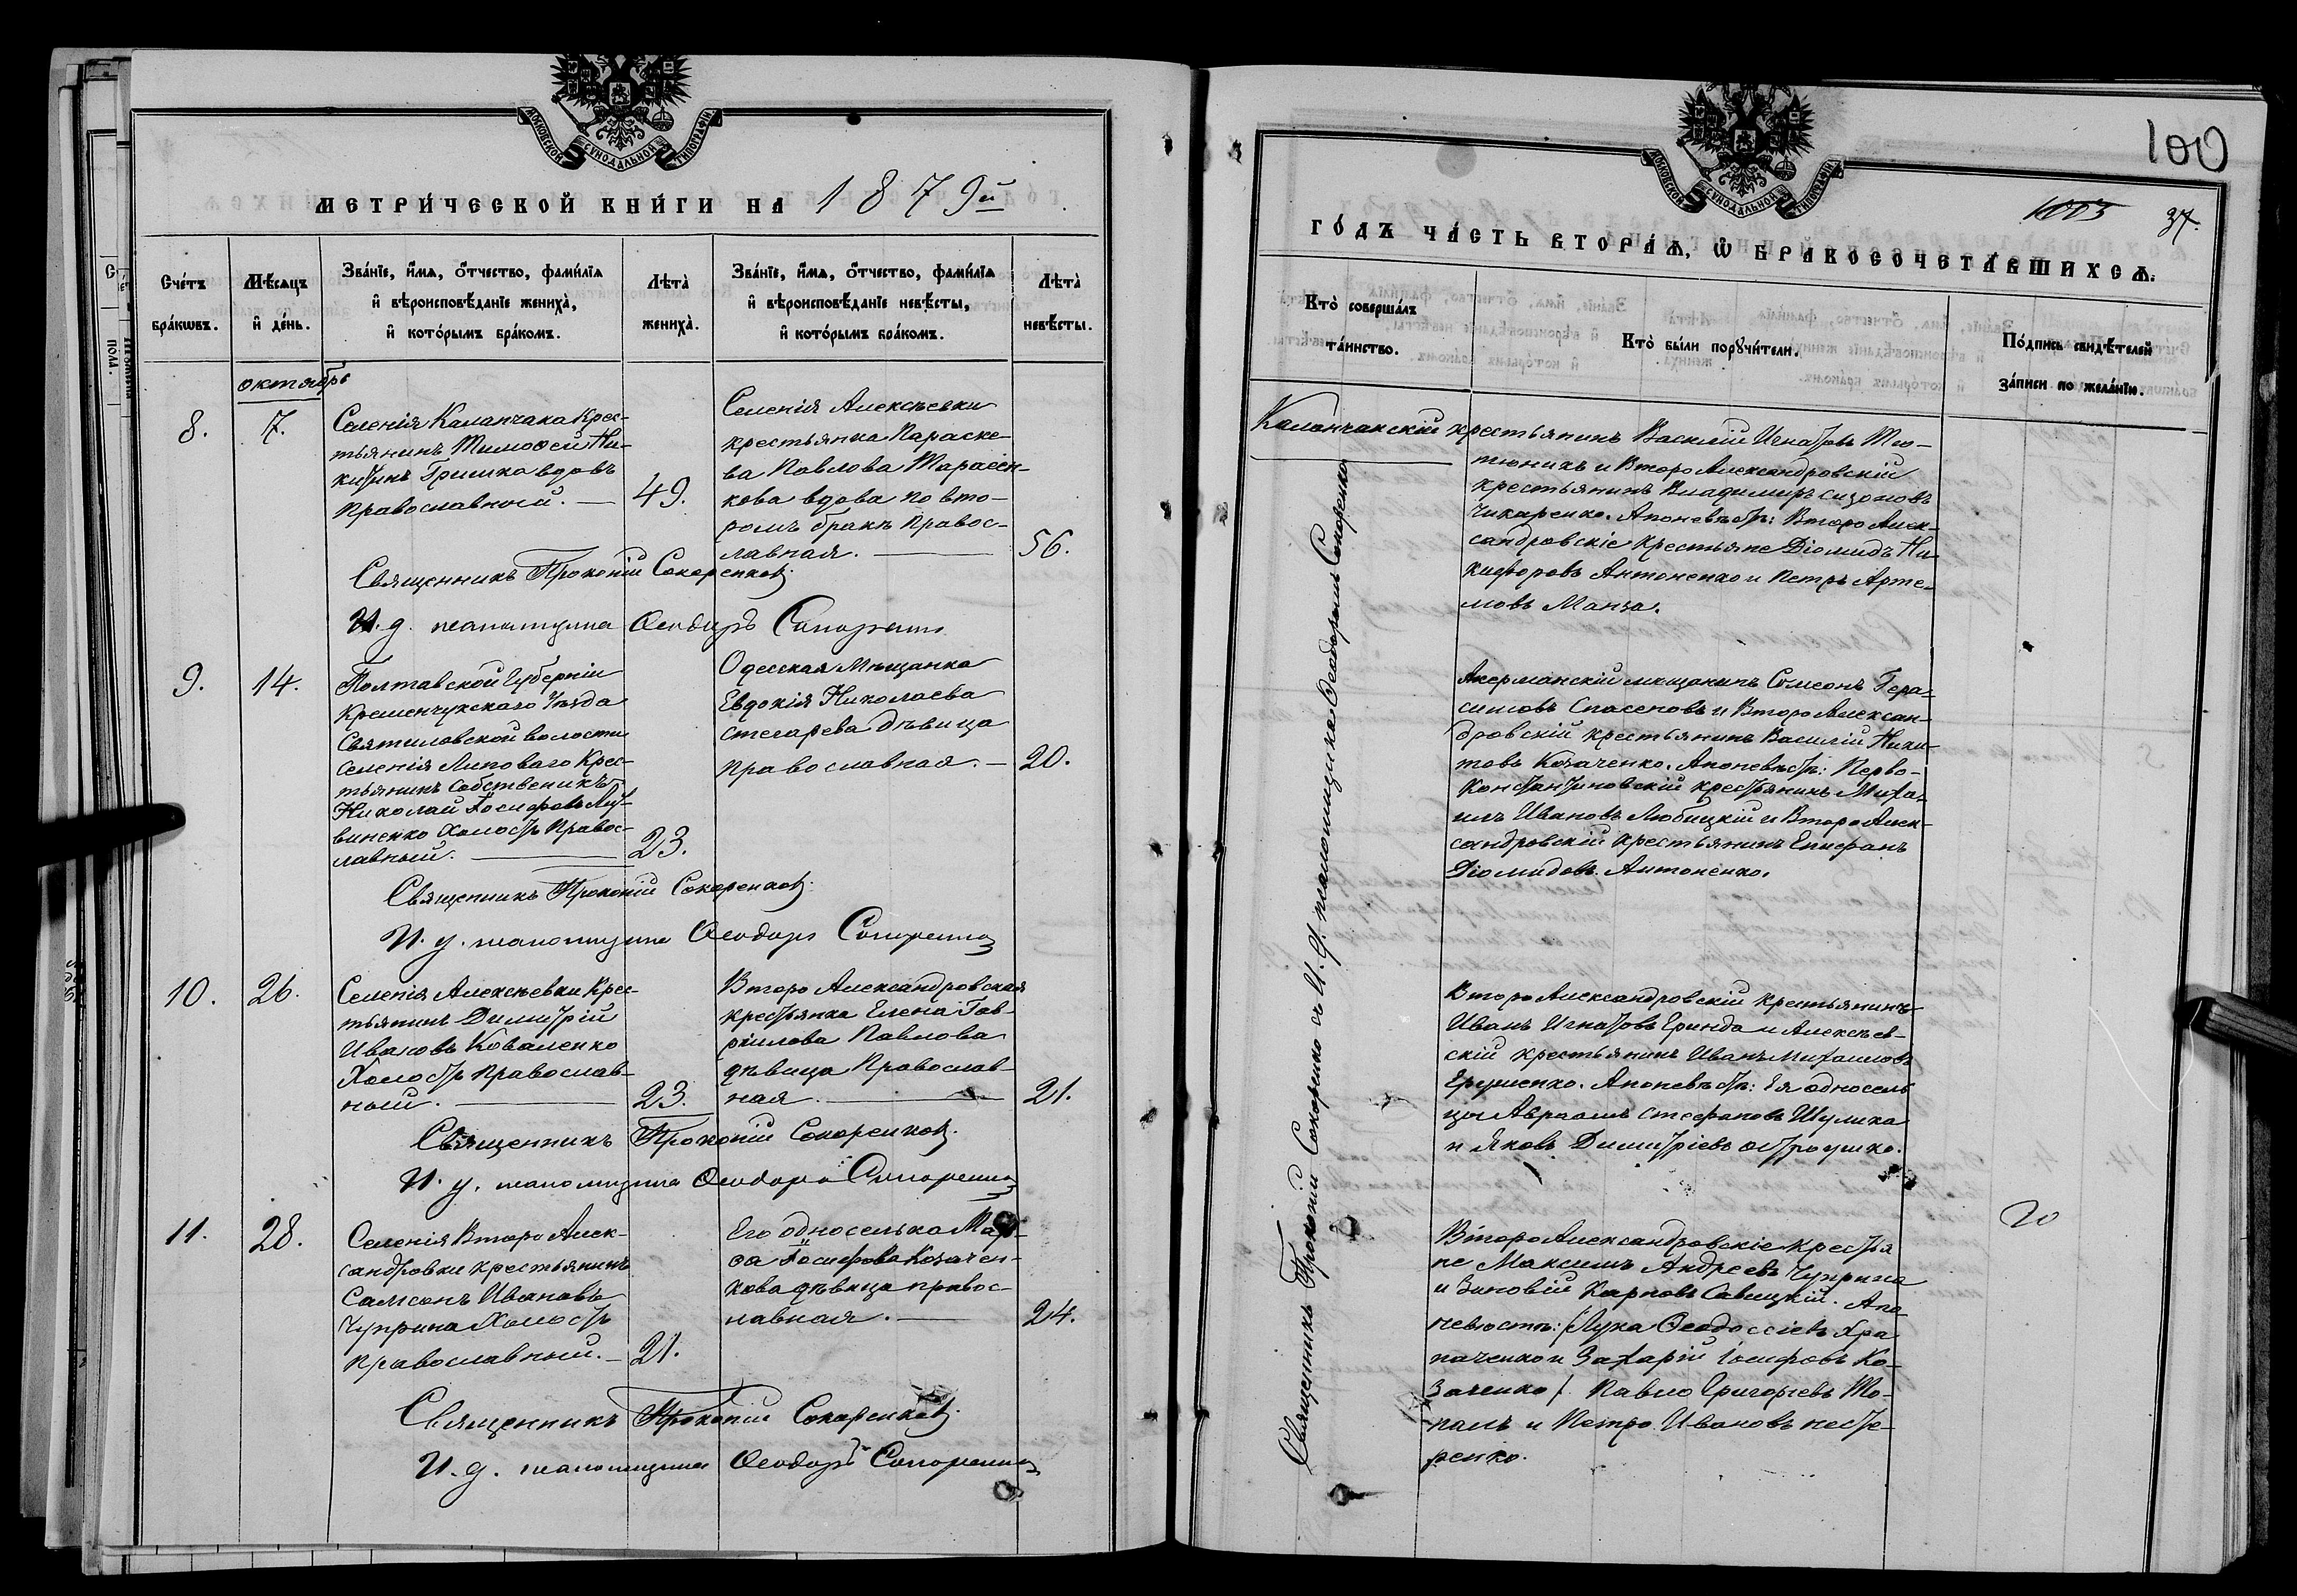 МОСКОВСКОЙ СѴНОДАЛЬНОЙ ТИПОГРАФІИ
МЕТРИ́ЧЕСКОЙ КНИ́ГИ НА 1879й
Сче́тъ бра́кωвъ.
Мѣ́сяцъ и҆ де́нь.
Зва́нїе, и҆́мѧ, ѻ҆́тчество, фами́лїѧ и҆ вѣроисповѣ́данїе жениха̀, и҆ кото́рымъ бра́комъ.
Лѣта̀ жениха̀.
Зва́нїе, и҆́мѧ, ѻ҆́тчество, фами́лїѧ и҆ вѣроисповѣ́данїе невѣ́сты, и҆ кото́рымъ бра́комъ.
Лѣта̀ невѣ́сты.
октябрь
8. 7.
Селенія Каланчака Крес-
тьянинъ Тимоѳей Ни-
китинъ Гришко вдовъ
православный. — 49.
Селенія Алексѣевки
крестьянка Параске-
ва Павлова Тарасен-
кова вдова по вто-
ромъ бракѣ правос-
лавная. — 56.
Священникъ Прокопій Сокоренковъ
И. д. псаломщика Ѳеодоръ Сокоренко
9. 14.
Полтавской Губерніи
Кременчукскаго Уѣзда
Святиловской волости
Селенія Липоваго Крес-
тьянинъ Собственикъ
Николай Іосифовъ Лит-
виненко Холостъ Правос-
лавный. — 23.
Одесская Мѣщанка
Евдокія Николаева
Стегарева дѣвица
православная. — 20.
Священникъ Прокопій Сокоренковъ
И. д. псаломщика Ѳеодоръ Сокоренко
10. 26.
Селенія Алексѣевки Крес-
тьянинъ Димитрій
Ивановъ Коваленко
Холостъ православ-
ный. — 23.
Второ Александровская
крестьянка Елена Гав-
ріилова Павлова
дѣвица Православ-
ная. — 21.
Священникъ Прокопій Сокоренковъ
И. д. псаломщика Ѳеодоръ Сокоренко
11. 28.
Селенія Второ Алек-
сандровки крестьянинъ
Самсонъ Ивановъ
Чуприна Холостъ
православный. — 21.
Его односелька Мар-
ѳа Іосифова Козачен-
кова дѣвица правос-
лавная. — 24.
Священникъ Прокопій Сокоренковъ
И. д. псаломщика Ѳеодоръ Сокоренко
100
МОСКОВСКОЙ СѴНОДАЛЬНОЙ ТИПОГРАФІИ
1003 37.
ГО́ДЪ ЧА́СТЬ ВТОРА́Ѧ, Ѡ҆ БРАКОСОЧЕТА́ВШИХСѦ.
Кто̀ соверша́лъ та́инство.
Кто̀ бы́ли порꙋчи́тели.
По́дпись свидѣ́телей за́писи по жела́нїю.
Каланчакскій крестьянинъ Василій Игнатовъ Тю-
тюникъ и Второ Александровскій
крестьянинъ Владимиръ Сизоновъ
Чикаренко. Апоневѣстѣ: Второ Алек-
сандровскіе Крестьяне Діомидъ Ни-
кифоровъ Антоненко и Петръ Арте-
мовъ Манза.
Акерманскій мѣщанинъ Симеонъ Гера-
симовъ Спасеновъ и Второ Алексан-
дровскій крестьянинъ Василій Ники-
товъ Козаченко. Апоневѣстѣ: Перво-
Константиновскій крестьянинъ Миха-
илъ Ивановъ Любицкій и Второ Алек-
сандровскій крестьянинъ Епифанъ
Діомидовъ Антоненко.
Второ Александровскій крестьянинъ
Иванъ Игнатовъ Гринда и Алексѣев-
скій крестьянинъ Иванъ Михаиловъ
Ерушенко. Апоневѣстѣ: Ея односель
цы Авраамъ Стефановъ Шулика
и Яковъ Димитріевъ Остроушко.
20
Второ Александровскіе Крестья
не Максимъ Андреевъ Чуприна
и Зиновій Карповъ Савицкій. Апо
невѣстѣ: /Лука Ѳеодоссіевъ Хра
паченко и Захарій Іосифовъ Ко-
заченко/. Павло Григорьевъ То-
палъ и Петро Ивановъ Несте-
ренко.
Священникъ Прокопій Сокоренко съ И. д. псаломщика Ѳеодоромъ Сокоренко